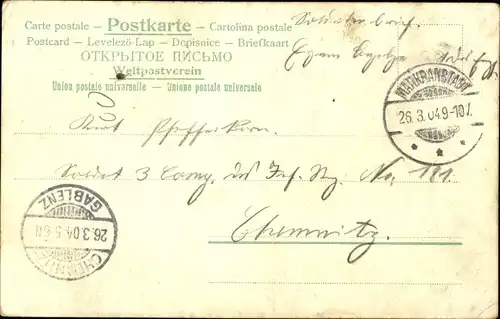 Carte postale – Postkarte – Cartolina postale
Postcard – Levelező-Lap – Dopisnice – Briefkaart
ОТКРЫТОЕ ПИСЬМО
Weltpostverein
Union postale universelle – Unione postale universale
Soldatenbrief.
MARKRANSTÄDT
26. 3. 04. 9-10V.
Kurt Pfefferkorn.
Soldat 3 Comp. des Inf. Rg. No.
Chemnitz.
GABLENZ
26.3.04.5-6
CHEMNITZ